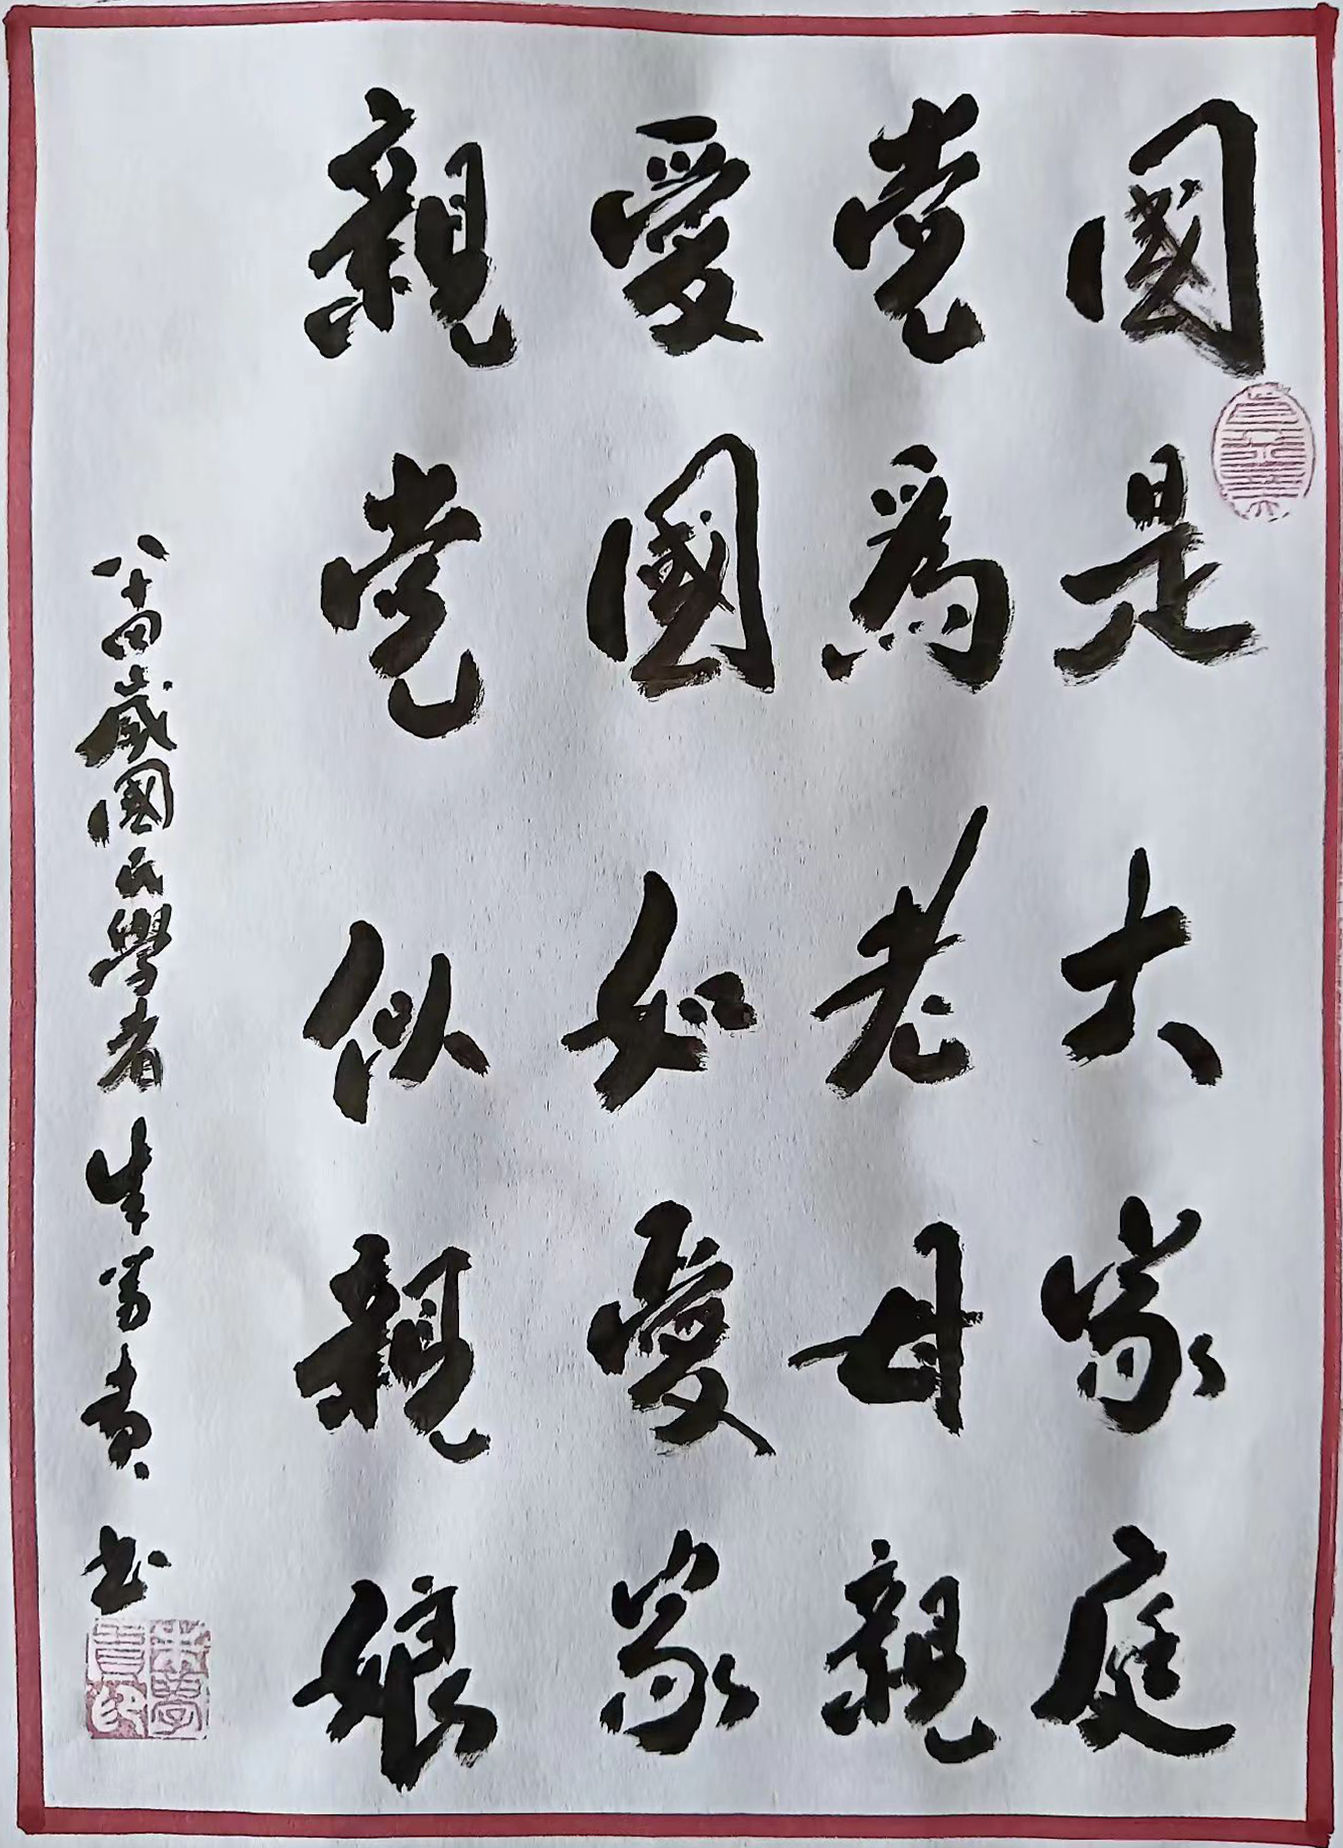 國是大家庭
党爲老母親
愛國如愛家
親党似親娘
八十四歲國民學者朱孝貴書